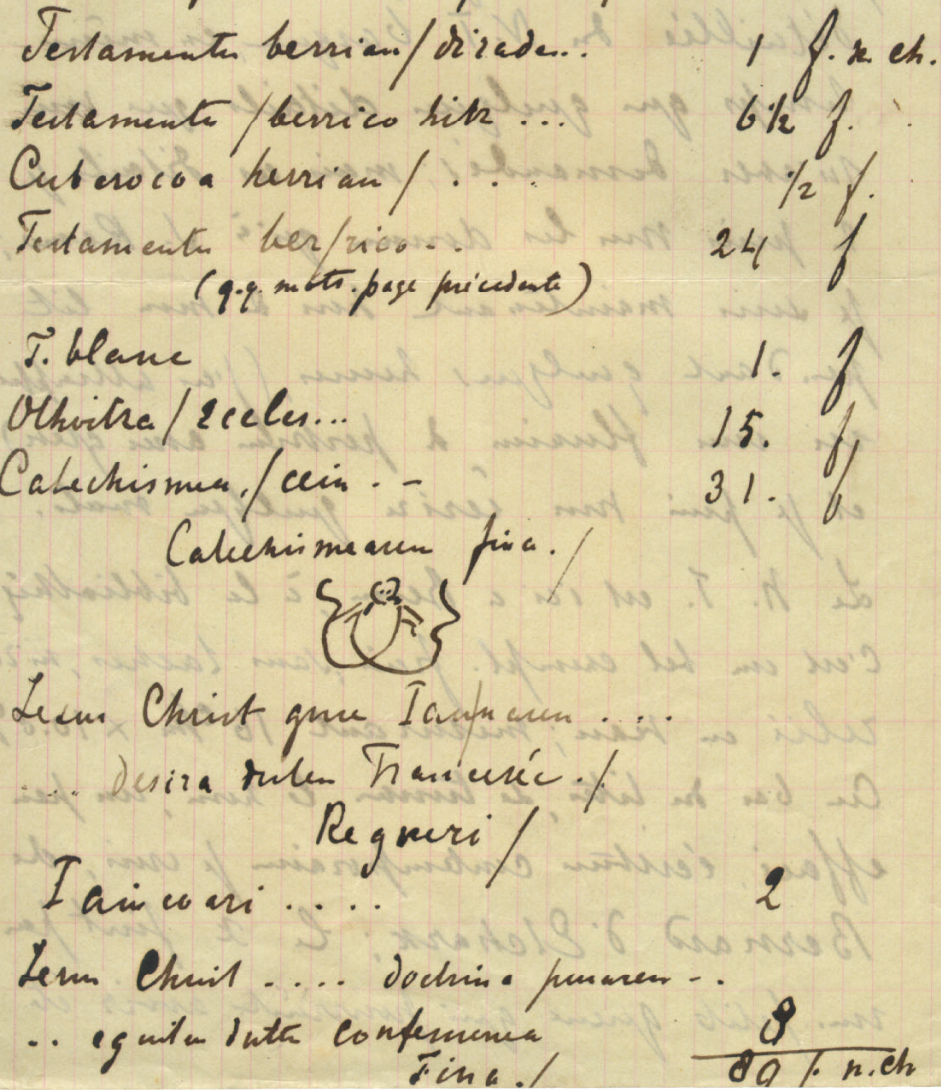 Testamentu berrian / diraden... 1 f. n. ch.
Testamentu / berrico hitz ... 6 1/2 f.
herrian / . . . 1/2 f.
Testamentu ber/rico . . 24 f
(q.q. mots. page précédente)
T. blanc 1. f
/ Eccles... 15. f,
Catechismea. / cein . - 31. f
Catechismearen fina. /
Iesus Christ gure Iaunaren . . . .
... desira duten Francesék . /
Regueri /
. . . . 2
Iesus Christ . . . . doctrina puraren - .
.. eguiten dute confessionea 8
Fina. / 89 f. n. ch